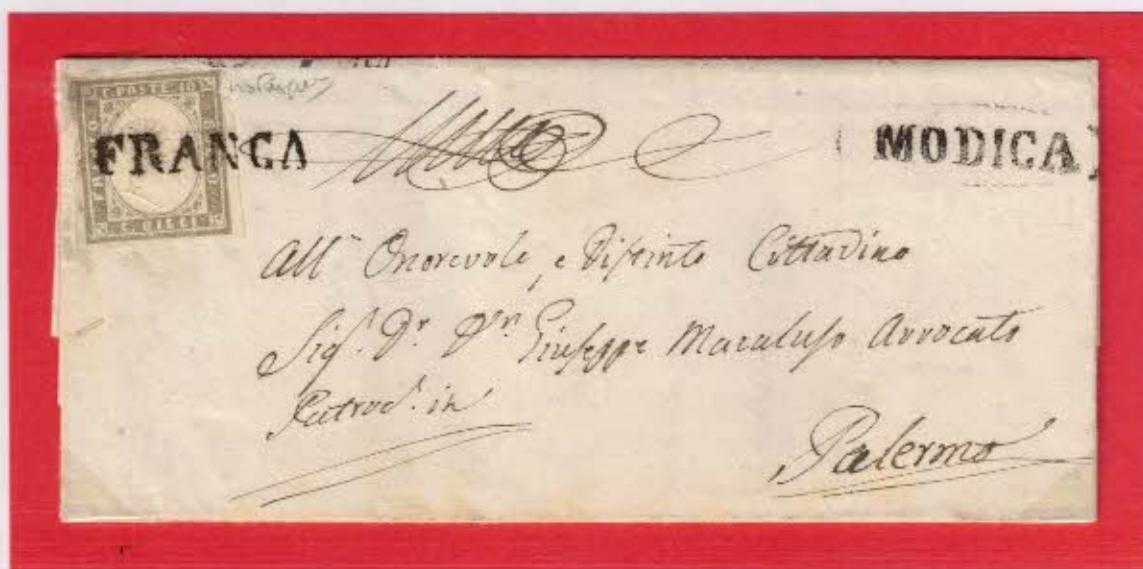 C. POSTE 10
FRANCO
C. DIECI
FRANCA
MODICA
All' Onorevole, e Distinto Cittadino
Sig.r Dr. Dn Giuseppe Macaluso Avvocato
Patroc.e in
Palermo